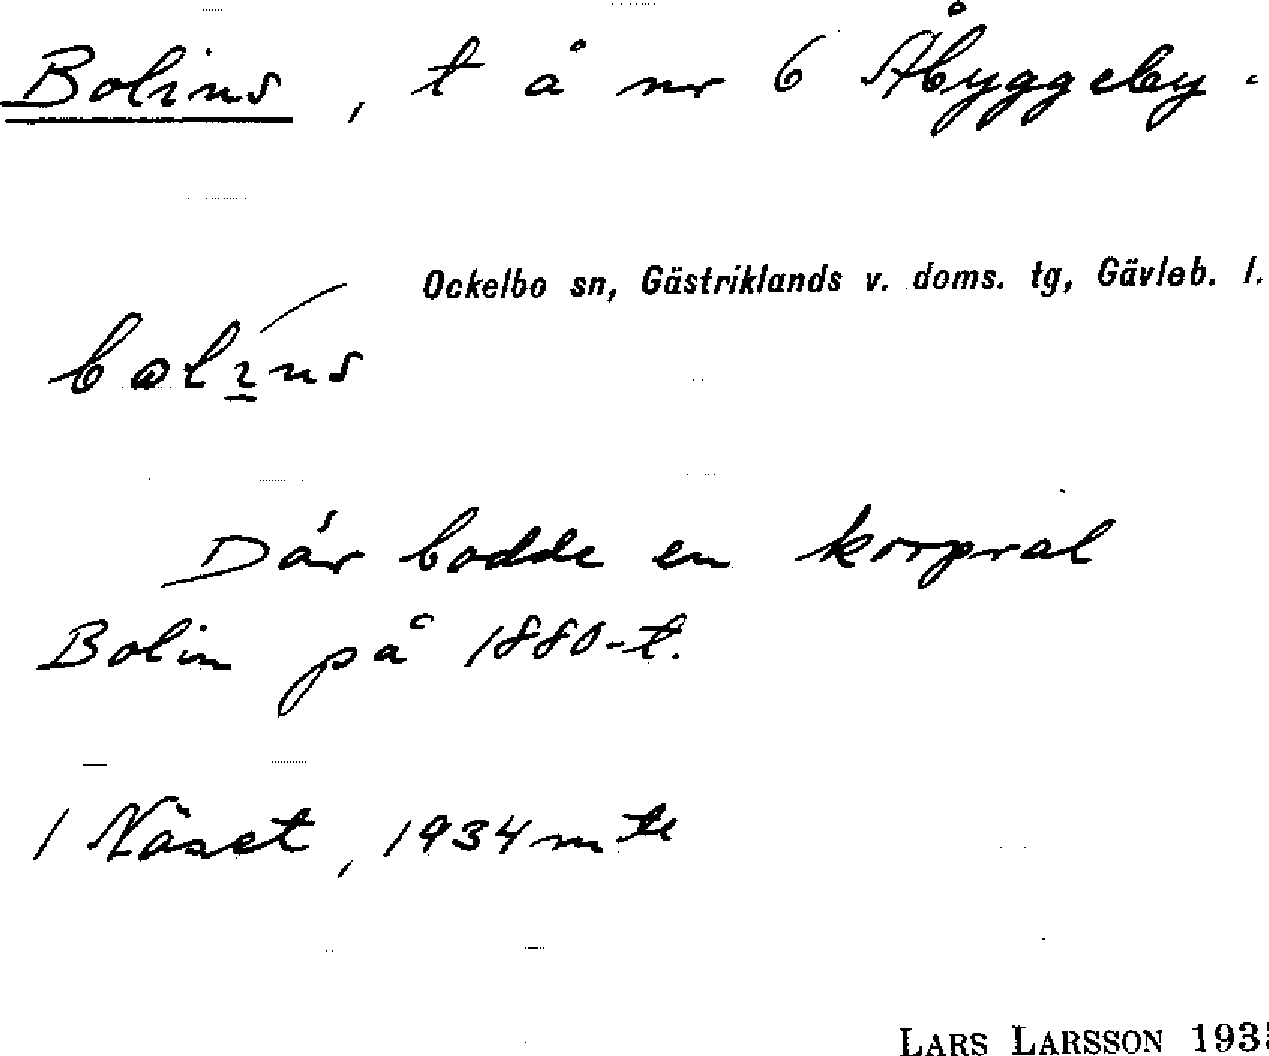 Bolins, t å nr 6 Åbyggeby.
Ockelbo sn, Gästriklands v. doms. tg, Gävleb. l.
bolíns
Där bodde en korpral
Bolin på 1880-t.
1 Näset, 1934 m
LARS LARSSON 193